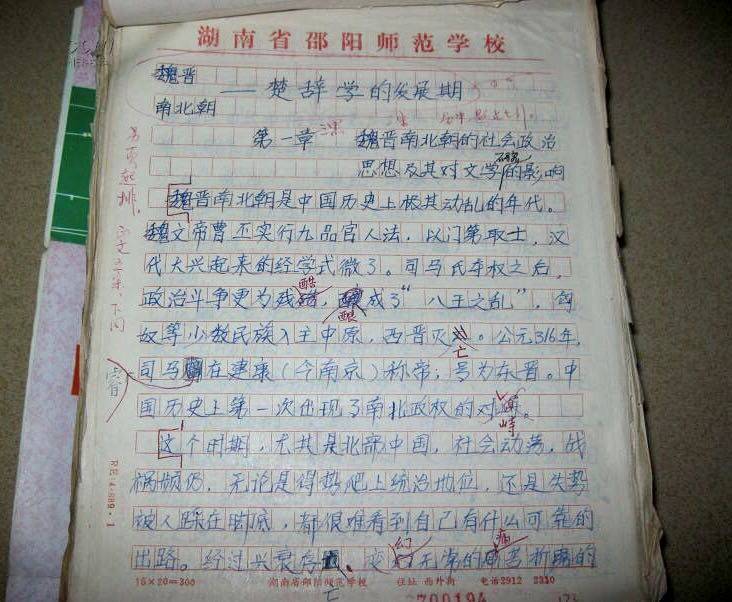 湖南省邵阳师范学校
魏晋
——楚辞学的发展期
南北朝
第一章 魏晋南北朝的社会政治
思想及其对文学研究的影响
魏晋南北朝是中国历史上极其动乱的年代。
魏文帝曹丕实行九品官人法,以门第取士,汉
代大兴起来的经学式微了。司马氏夺权之后,
政治斗争更为残酷,酿成了“八王之乱”,匈
奴等少数民族入主中原,西晋灭亡。公元316年,
司马睿在建康(今南京)称帝,号为东晋。中
国历史上第一次出现了南北政权的对峙。
这个时期,尤其是北部中国,社会动荡,战
祸频仍,无论是得势爬上统治地位,还是失势
被人踩在脚底,都很难看到自己有什么可靠的
出路。经过兴衰存亡、变幻无常的痛苦折磨的
15×20=300 湖南省邵阳师范学校 住址 西外街 电话2912 2310
另页起排,